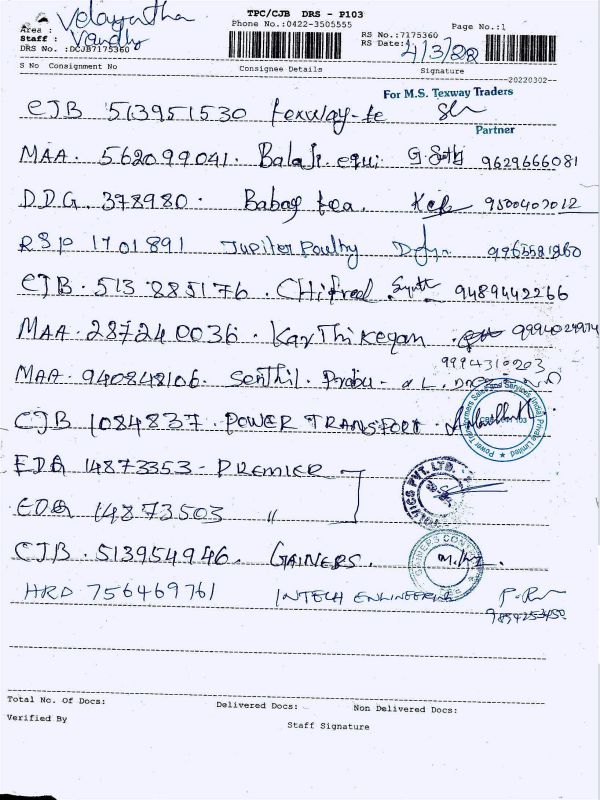 TPC/CJB DRS - P103
Phone No.:0422-3505555
Page No.:1
Area :
Staff :
DRS No. :DCJB7175360
RS No.:7175360
RS Date: 4/3/22
S No Consignment No Consignee Details Signature
20220302
For M.S. Texway Traders
Partner
CJB 513951530 texway-te
MAA. 562099041. Balaji equi 9629666081
D.D.G. 378980. Babag tea. 9500402012
RSP 1701891 Jupiter Poultry 9965581860
CJB. 513885176. 9489442266
MAA. 287240036. Karthikeyan
9994310203
MAA. 940848106. Senthil. Prabu
CJB 1084837. POWER TRANSFORT.
EDQ 14873353 - PREMIER
EDQ 14873503 "
CJB. 513954946. GAINERS.
HRD 756469761 INTECH ENGINEERING
Total No. Of Docs: Delivered Docs: Non Delivered Docs:
Verified By
Staff Signature